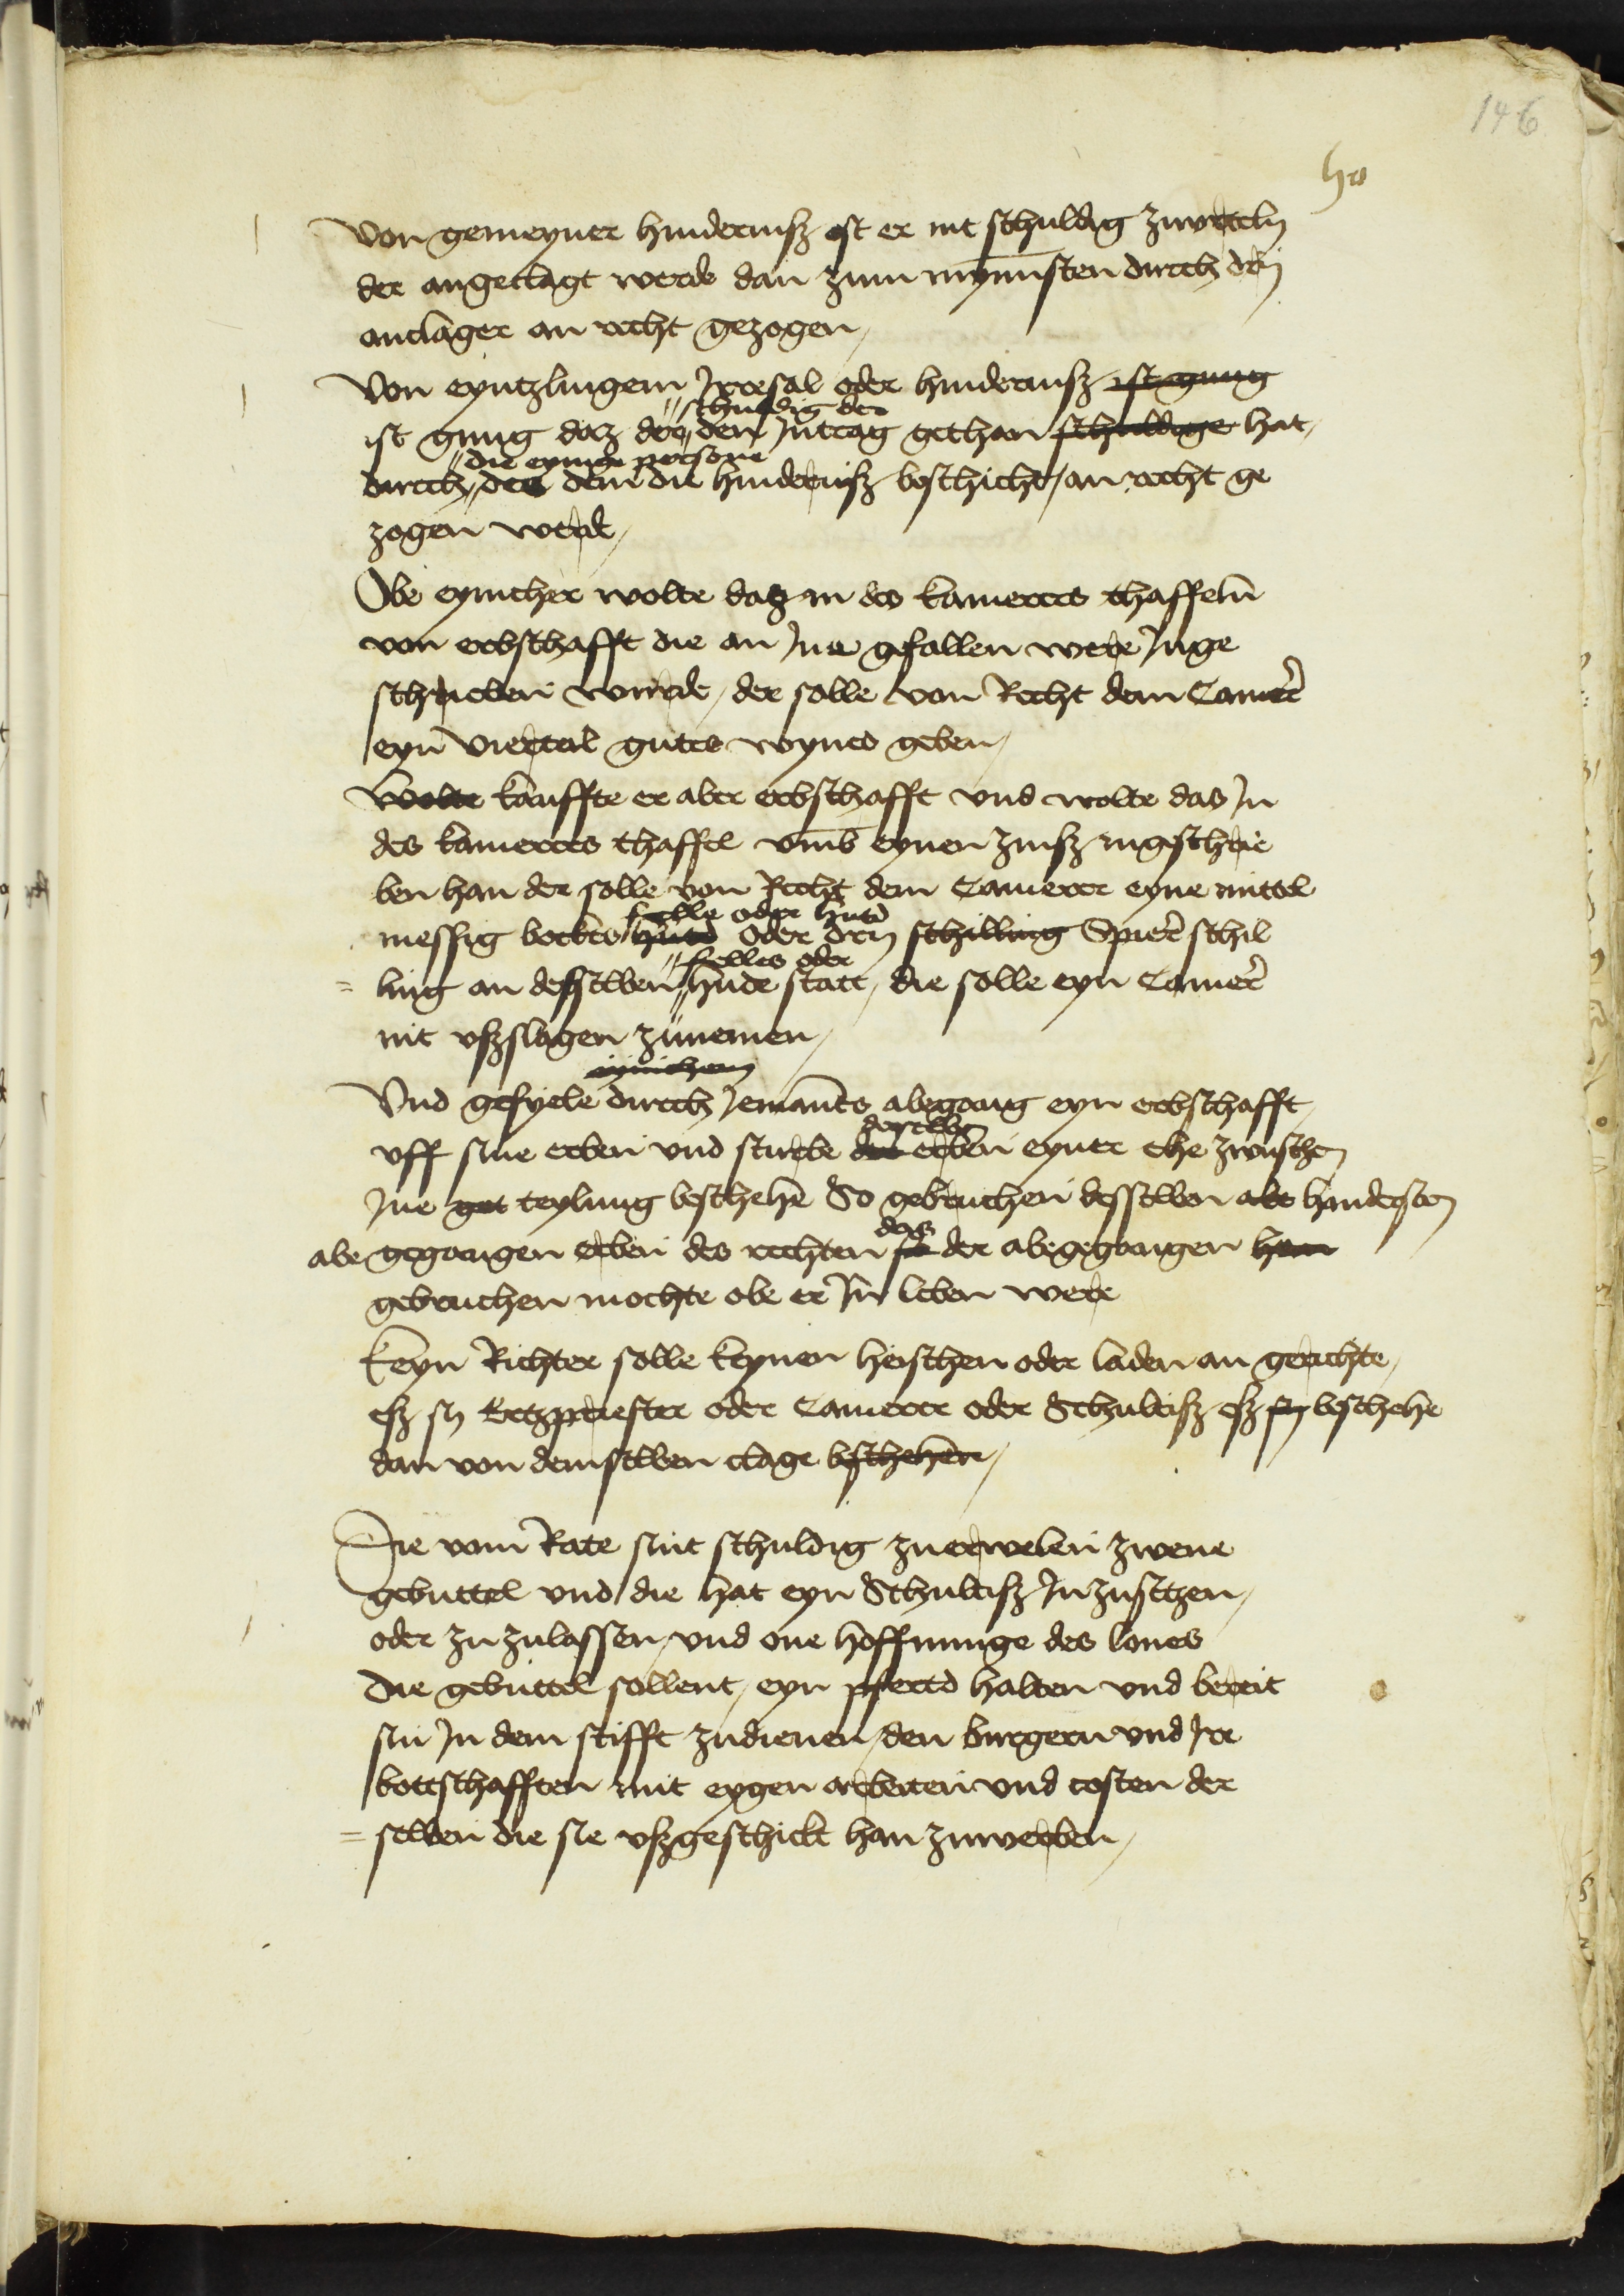 146
Von gemeyner hindernisz ist er nit schuldig zuurteiln
der angeclagt werde dan zum mynnsten durch den
ancläger an recht gezogen,
Von eyntzlingem Irresal oder hindernisz ist gnug
schuldig der
ist gnug daz der den Intrag gethan schuldige hat,
die eynige persone
durch des dem die hindernisz beschicht, an recht ge
zogen werde,
Obe eynicher wolte daz in des kamerers thaffeln
von erbschafft die an Ine gefallen were Inge
schrieben wurde, der solle von Recht dem Camerer
eyn viertail gutes wynes geben,
Wolte kauffte er aber erbschafft vnd wolte das In
des kamerers thaffel vmb eynen zinsz ingeschrie
ben han der solle von Recht dem Camerer eyne mittel
felle oder hutd
messig bockes hutd oder dry schilling Spirer schil
felles oder
ling an desselben hude statt, die solle eyn Camerer
nit vszslagen zunemen,
eynichem
Vnd gefyele durch Iemants abegang eyn erbschafft,
derselben
vff sine erben vnd sturbe der erben eyner ehe zwuschen
Ine get teylung beschehe So gebruchen desselben abe hindersten
das
abe gegangen erben des rechten so der abegegangen hern
gebruchen mochte obe er In leben were
Keyn Richter solle keynen heischen oder laden an gerichte,
esz sy Ertzpriester oder Camerer oder Schultisz esz sy beschehe
dan von demselben clage beschehen,
Die vom Rate sint schuldig zuerwelen zwene
gebuttel vnd die hat eyn Schultisz Inzusetzen,
oder zu zulassen, vnd one hoffnunge des lones
Die gebuttel sollent, eyn pfertd halten vnd bereit
sin In dem stifft zudienen, den burgern vnd Ire
bottschafften mit eygen arbeiten vnd costen der
selben die sie vszgeschickt han zuwerben,